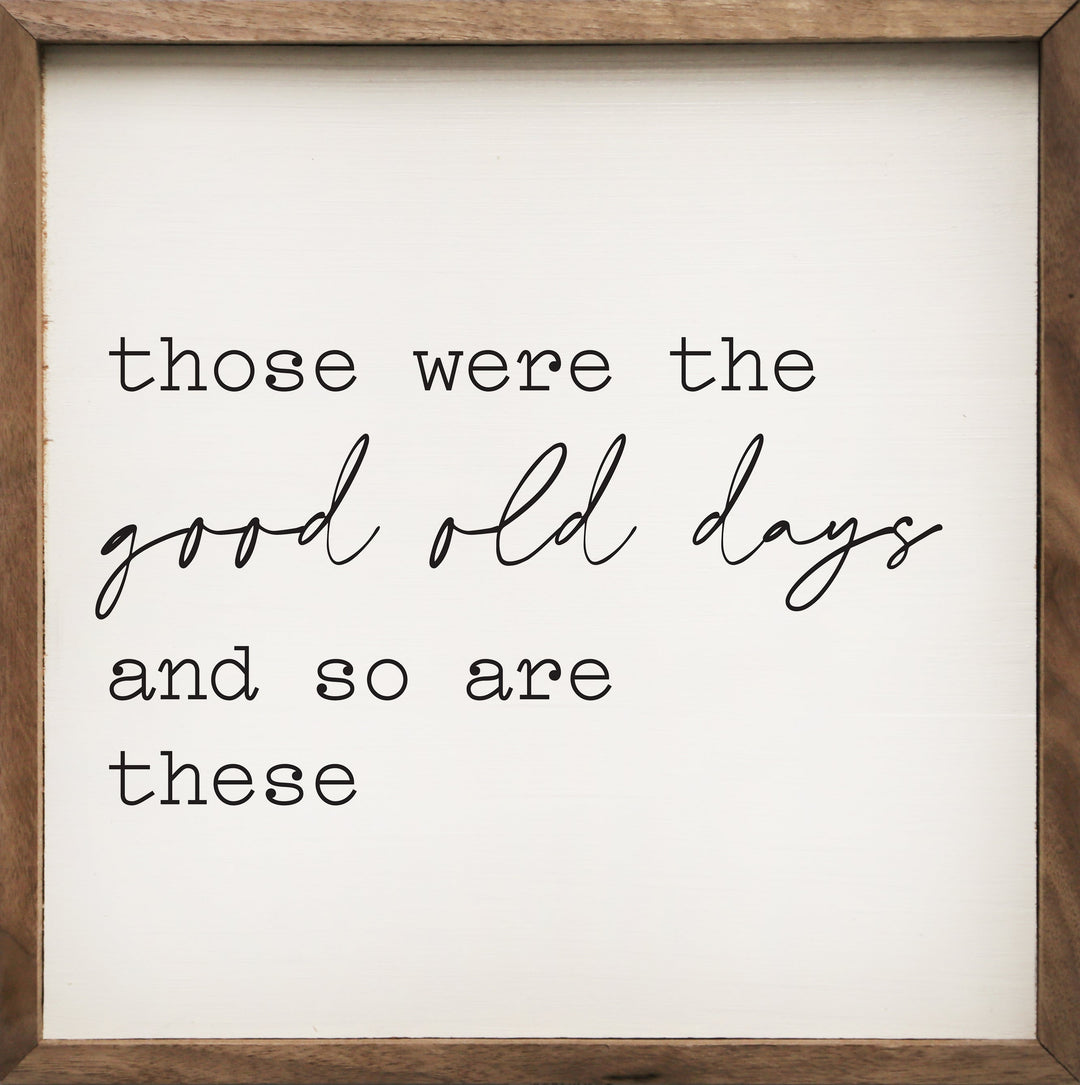 those were the
good old days
and so are
these